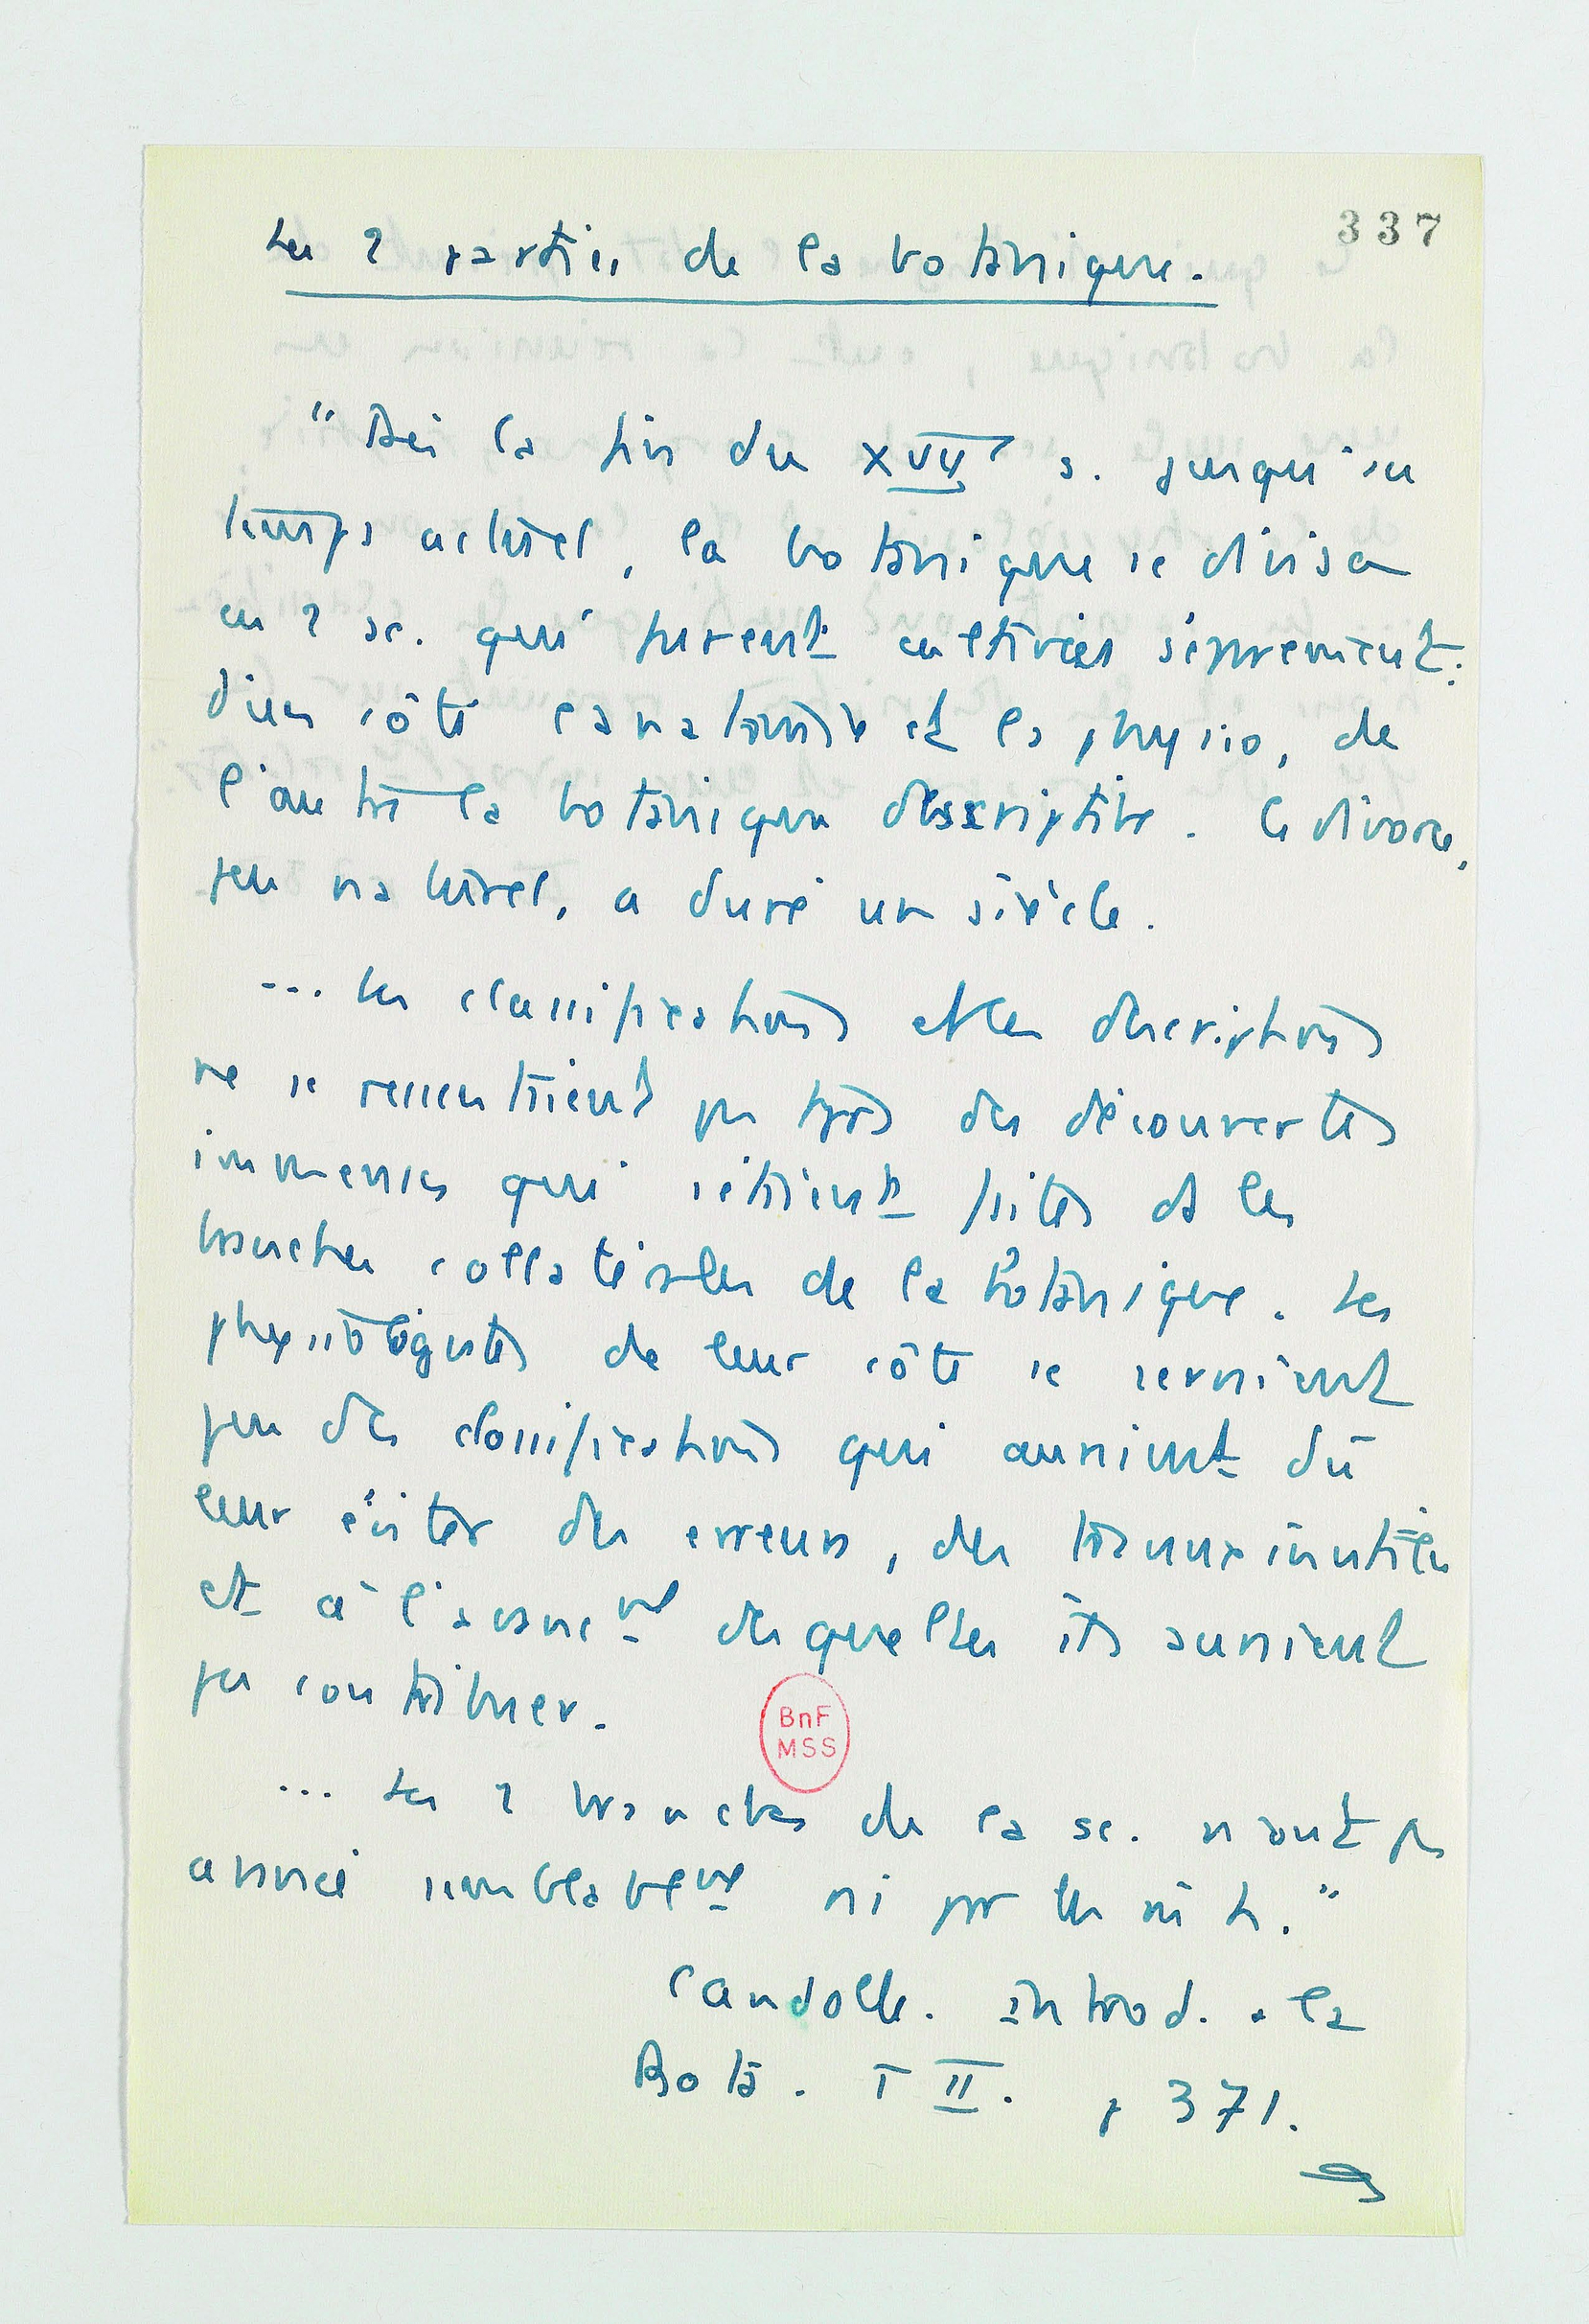 337
Les 2 parties de la botanique.
"Dès la fin du XVIIe s. jusqu'au
temps actuel, la botanique se divisa
en 2 sc. qui furent cultivées séparément :
d'un côté l'anatomie et la physio, de
l'autre la botanique descriptive. Ce divorce,
peu naturel, a duré un siècle.
... les classifications et les descriptions
ne se ressentaient pas trop des découvertes
immenses qui étaient faites ds les
branches collatérales de la botanique. Les
physiologistes de leur côté se servaient
peu des classifications qui auraient dû
leur éviter des erreurs, des travaux inutiles
et à l'avancent desquelles ils auraient
pu contribuer.
... Les 2 branches de la sc. n'ont pas
avancé semblablement ni par les m h."
Candolle. introd. a la
Bota. T II. p 371.
BnF
MSS